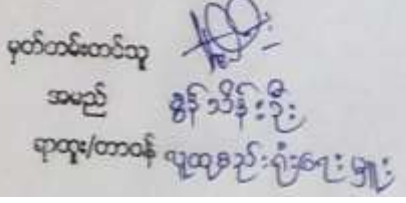 မှတ်တမ်းတင်သူ
အမည် စွန်သိန်းဦး
ရာထူး/တာဝန် လူထုစည်းရုံးရေးမှူး